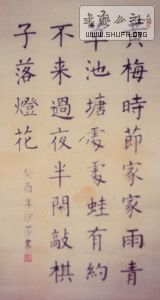 黃梅時節家家雨青
草池塘處處蛙有約
不来過夜半閑敲棋
子落燈花
癸酉年
書法公社
WWW.SHUFA.ORG